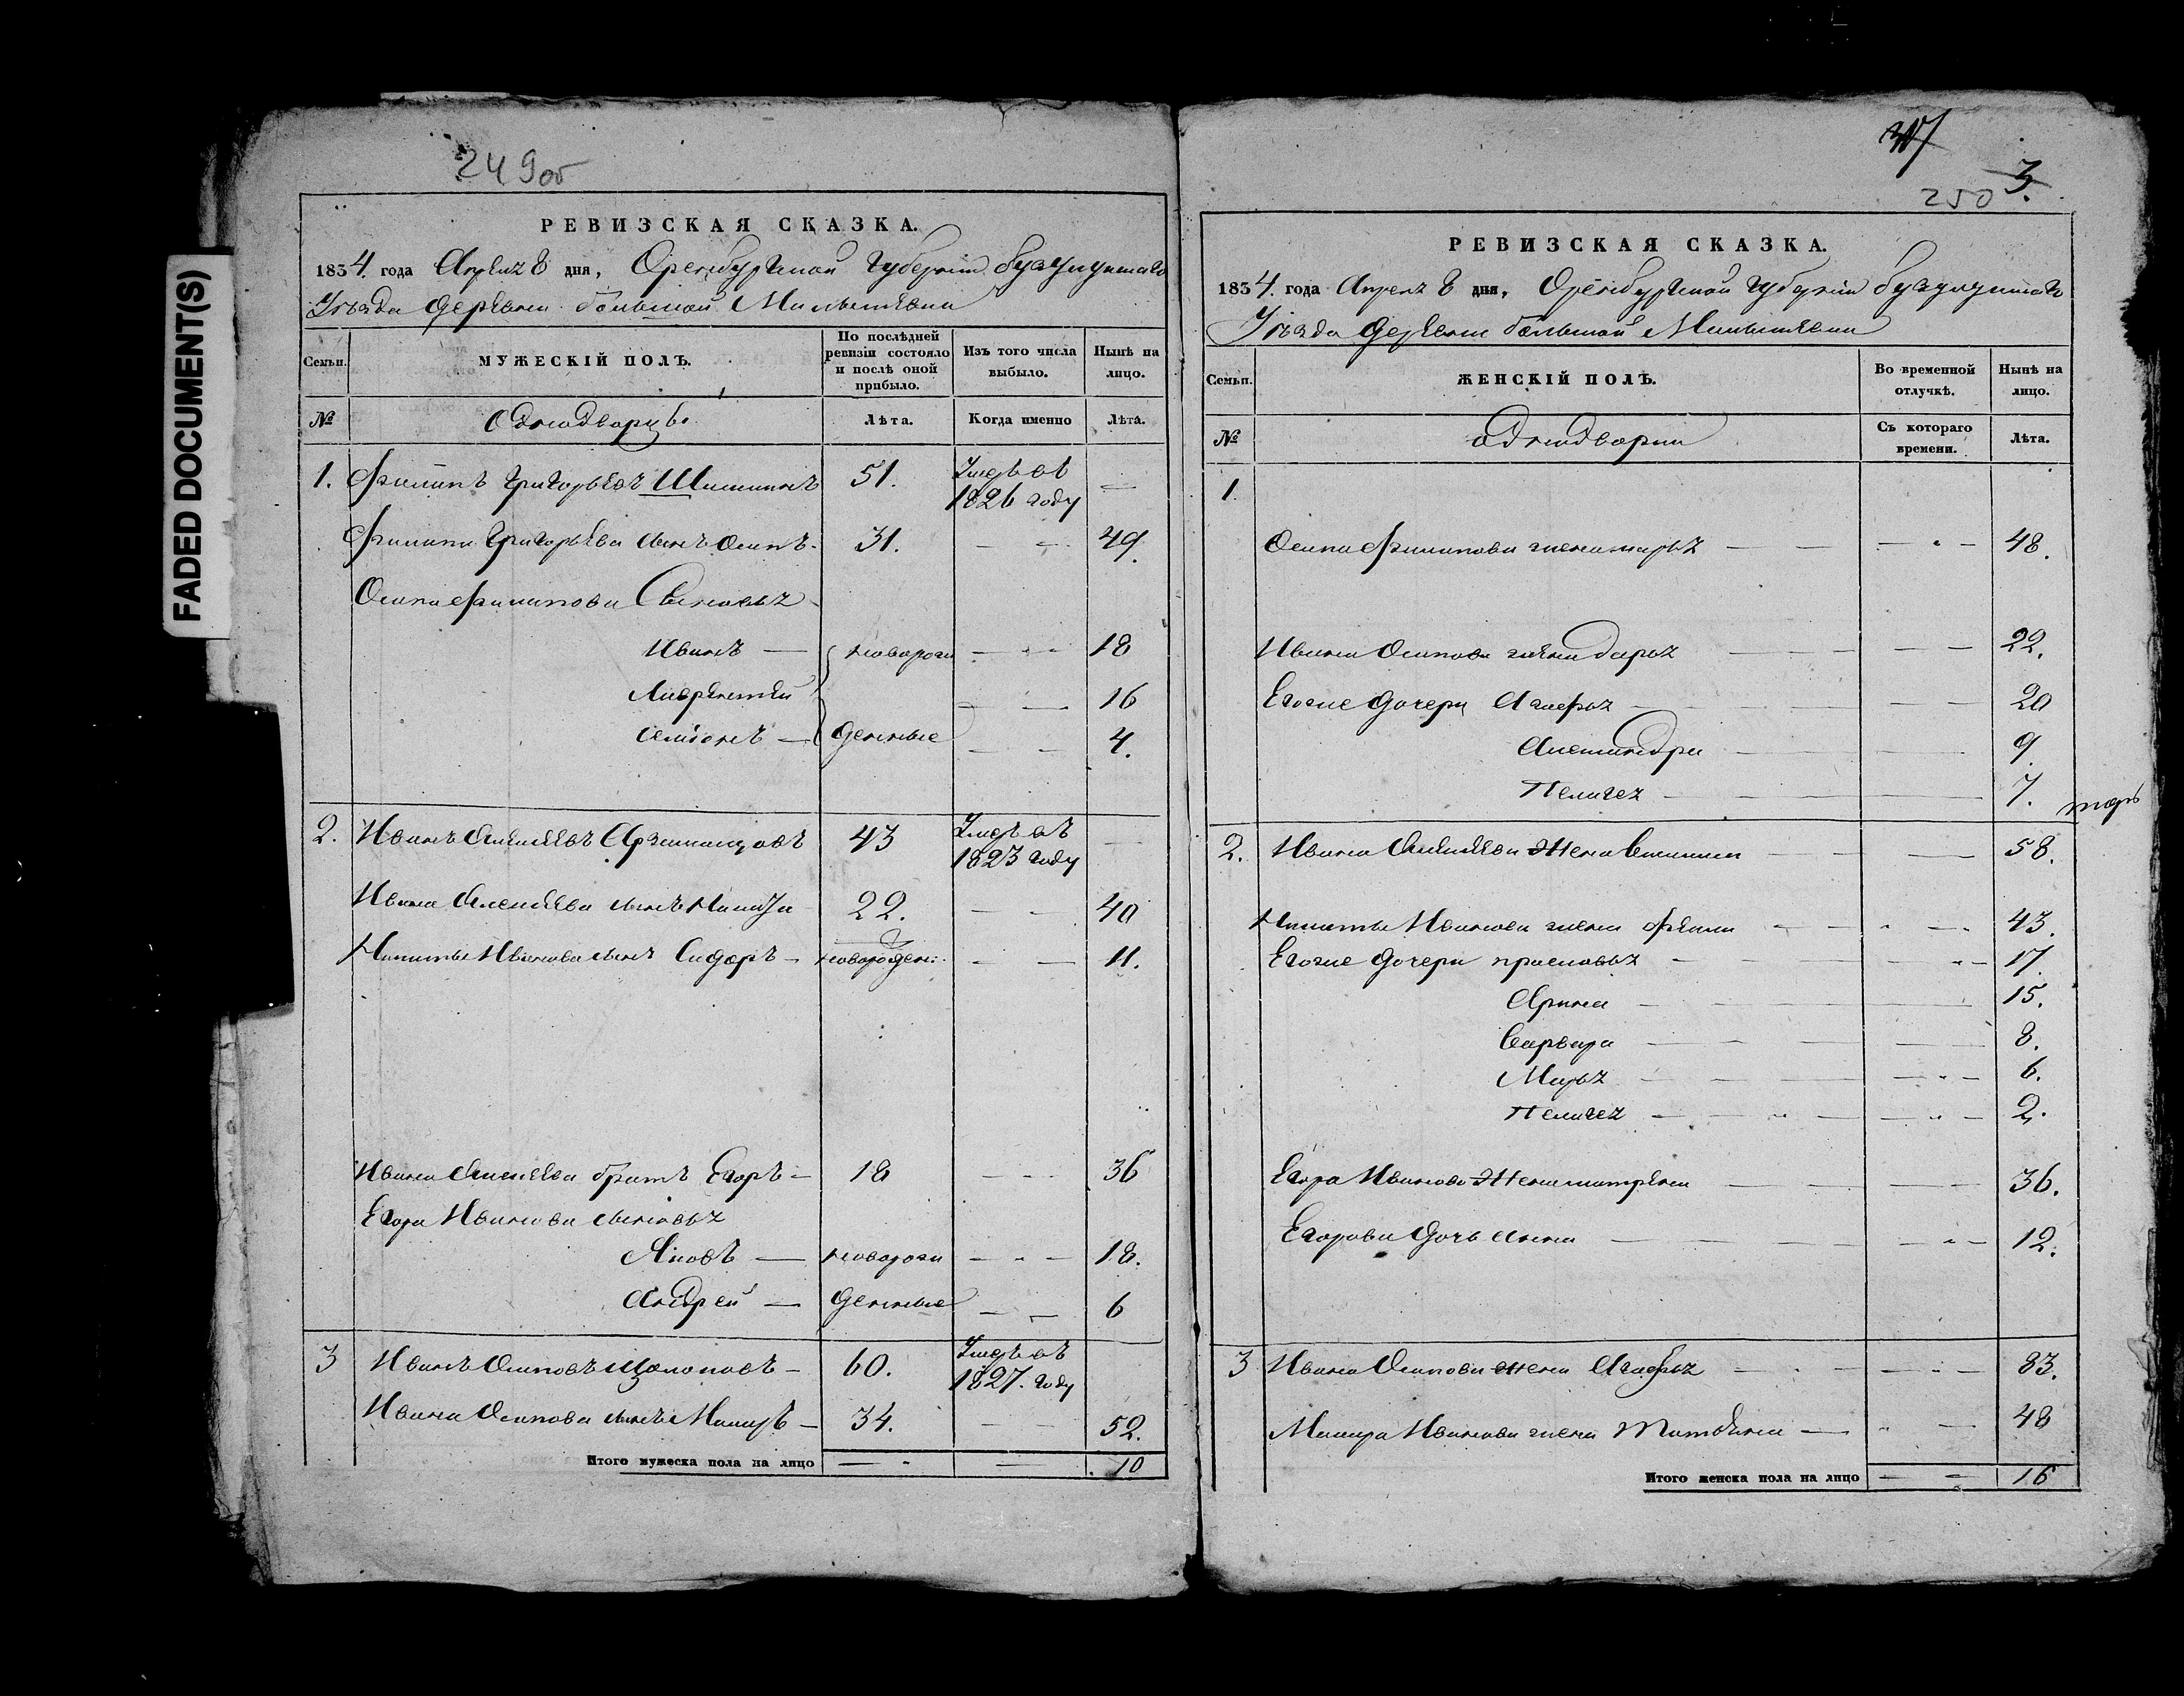 FADED DOCUMENT(S)
249об
РЕВИЗСКАЯ СКАЗКА.
1834. года Апреля 8 дня, Оренбургской губернии Бузулуцкаго
Уѣзда деревни большой
Семьи.
МУЖЕСКІЙ ПОЛЪ.
По послѣдней ревизіи состояло и послѣ оной прибыло.
Изъ того числа выбыло.
Нынѣ на лицо.
№
однодворцы
Лѣта.
Когда именно
Лѣта.
1. Филипъ Григорьевъ Шишкинъ 51. Умеръ въ 1826 году —
Филипа Григорьева сынъ Осипъ 31. — — 49.
Осипа Филипова Сыновья
Иванъ — новорож — — 18
Лаврентей — — 16
Семіонъ — денные — — 4.
2. Иванъ Алексѣевъ 43 Умеръ въ 1823 году —
Ивана Алексѣева сынъ Никита 22. — — 40
Никиты Иванова сынъ Сидоръ — новорожден: — — 11.
Ивана Алексѣева братъ Егоръ — 18 — — 36
Егора Иванова сыновья
Яковъ — новорож — — 18.
Андрей — денные — — 6
3 Иванъ Осиповъ — 60. Умеръ въ 1827. году
Ивана Осипова сынъ Макаръ — 34. — — 52.
Итого мужеска пола на лицо — — 10
250 3.
РЕВИЗСКАЯ СКАЗКА.
1834. года Апреля 8 дня, Оренбургской губернии Бузулуцкаго
Уѣзда деревни большой
Семьи.
ЖЕНСКІЙ ПОЛЪ.
Во временной отлучкѣ.
Нынѣ на лицо.
№
однодворки
Съ котораго времени.
Лѣта.
1.
Осипа Филипова жена марья — — 48.
Ивана Осипова жена дарья — — 22.
Егоже дочери Агафья — — 20
Александра — — 9
Пелагея — — 7.
2. Ивана Алексѣева Жена — — 58.
Никиты Иванова жена — — 43.
Егоже дочери прасковья — — 17
Арина — — 15.
Варвара — — 8.
Марья — — 6.
Пелагея — — 2.
Егора Иванова Жена матрена — — 36.
Егорова дочь Анна — — 12.
3 Ивана Осипова жена Агафья — — 83.
Макара Иванова жена Татьяна — — 48
Итого женска пола на лицо — — 16